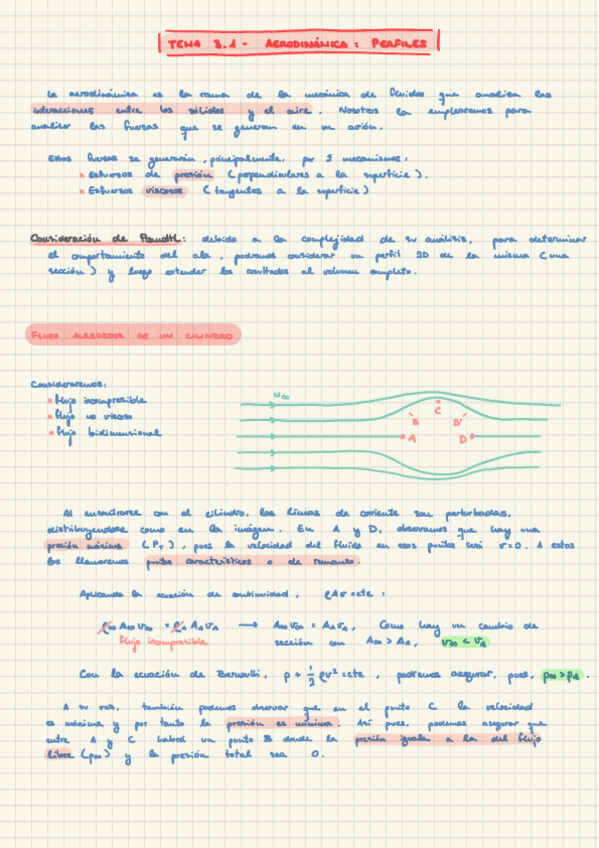 TEMA 3.1 - AERODINÁMICA: PERFILES
La aerodinámica es la rama de la mecánica de fluidos que analiza las
interacciones entre los sólidos y el aire. Nosotros la emplearemos para
analizar las fuerzas que se generan en un avión.
Estas fuerzas se generarán, principalmente, por 2 mecanismos:
Esfuerzos de presión (perpendiculares a la superficie).
Esfuerzos viscosos (tangentes a la superficie)
Consideración de Prandtl: debido a la complejidad de su análisis, para determinar
el comportamiento del ala, podremos considerar un perfil 2D de la misma (una
sección) y luego extender los resultados al volumen completo.
FLUJO ALREDEDOR DE UN CILINDRO
Consideraremos:
flujo incompresible
flujo no viscoso
flujo bidimensional
u∞
C
B B'
A D
Al encontrarse con el cilindro, las líneas de corriente son perturbadas,
distribuyéndose como en la imágen. En A y D, observamos que hay una
presión máxima (P_T), pues la velocidad del fluido en esos puntos será v=0. A estos
los llamaremos puntos característicos o de remanso.
Aplicando la ecuación de continuidad, ρAv = cte:
ρ∞ A∞ v∞ = ρ_A A_A v_A ⟶ A∞ v∞ = A_A v_A, Como hay un cambio de
flujo incompresible sección con A∞ > A_A, v∞ < v_A
Con la ecuación de Bernoulli, p + 1/2 ρv² = cte, podremos asegurar, pues, p∞ > p_A.
A su vez, también podemos observar que en el punto C la velocidad
es máxima y por tanto la presión es mínima. Así pues, podemos asegurar que
entre A y C habrá un punto B donde la presión iguala a la del flujo
libre (p∞) y la presión total sea 0.